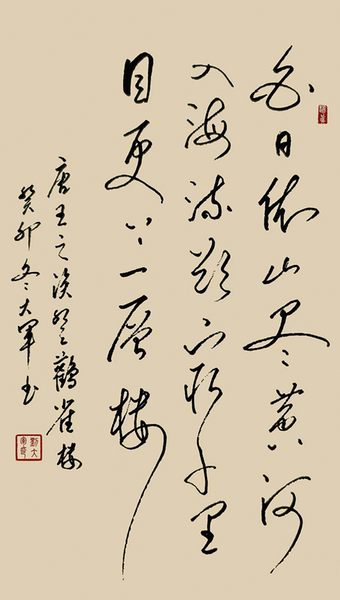 白日依山尽黄河
入海流欲穷千里
目更上一层楼
唐王之涣登鹳雀楼
癸卯冬大军书